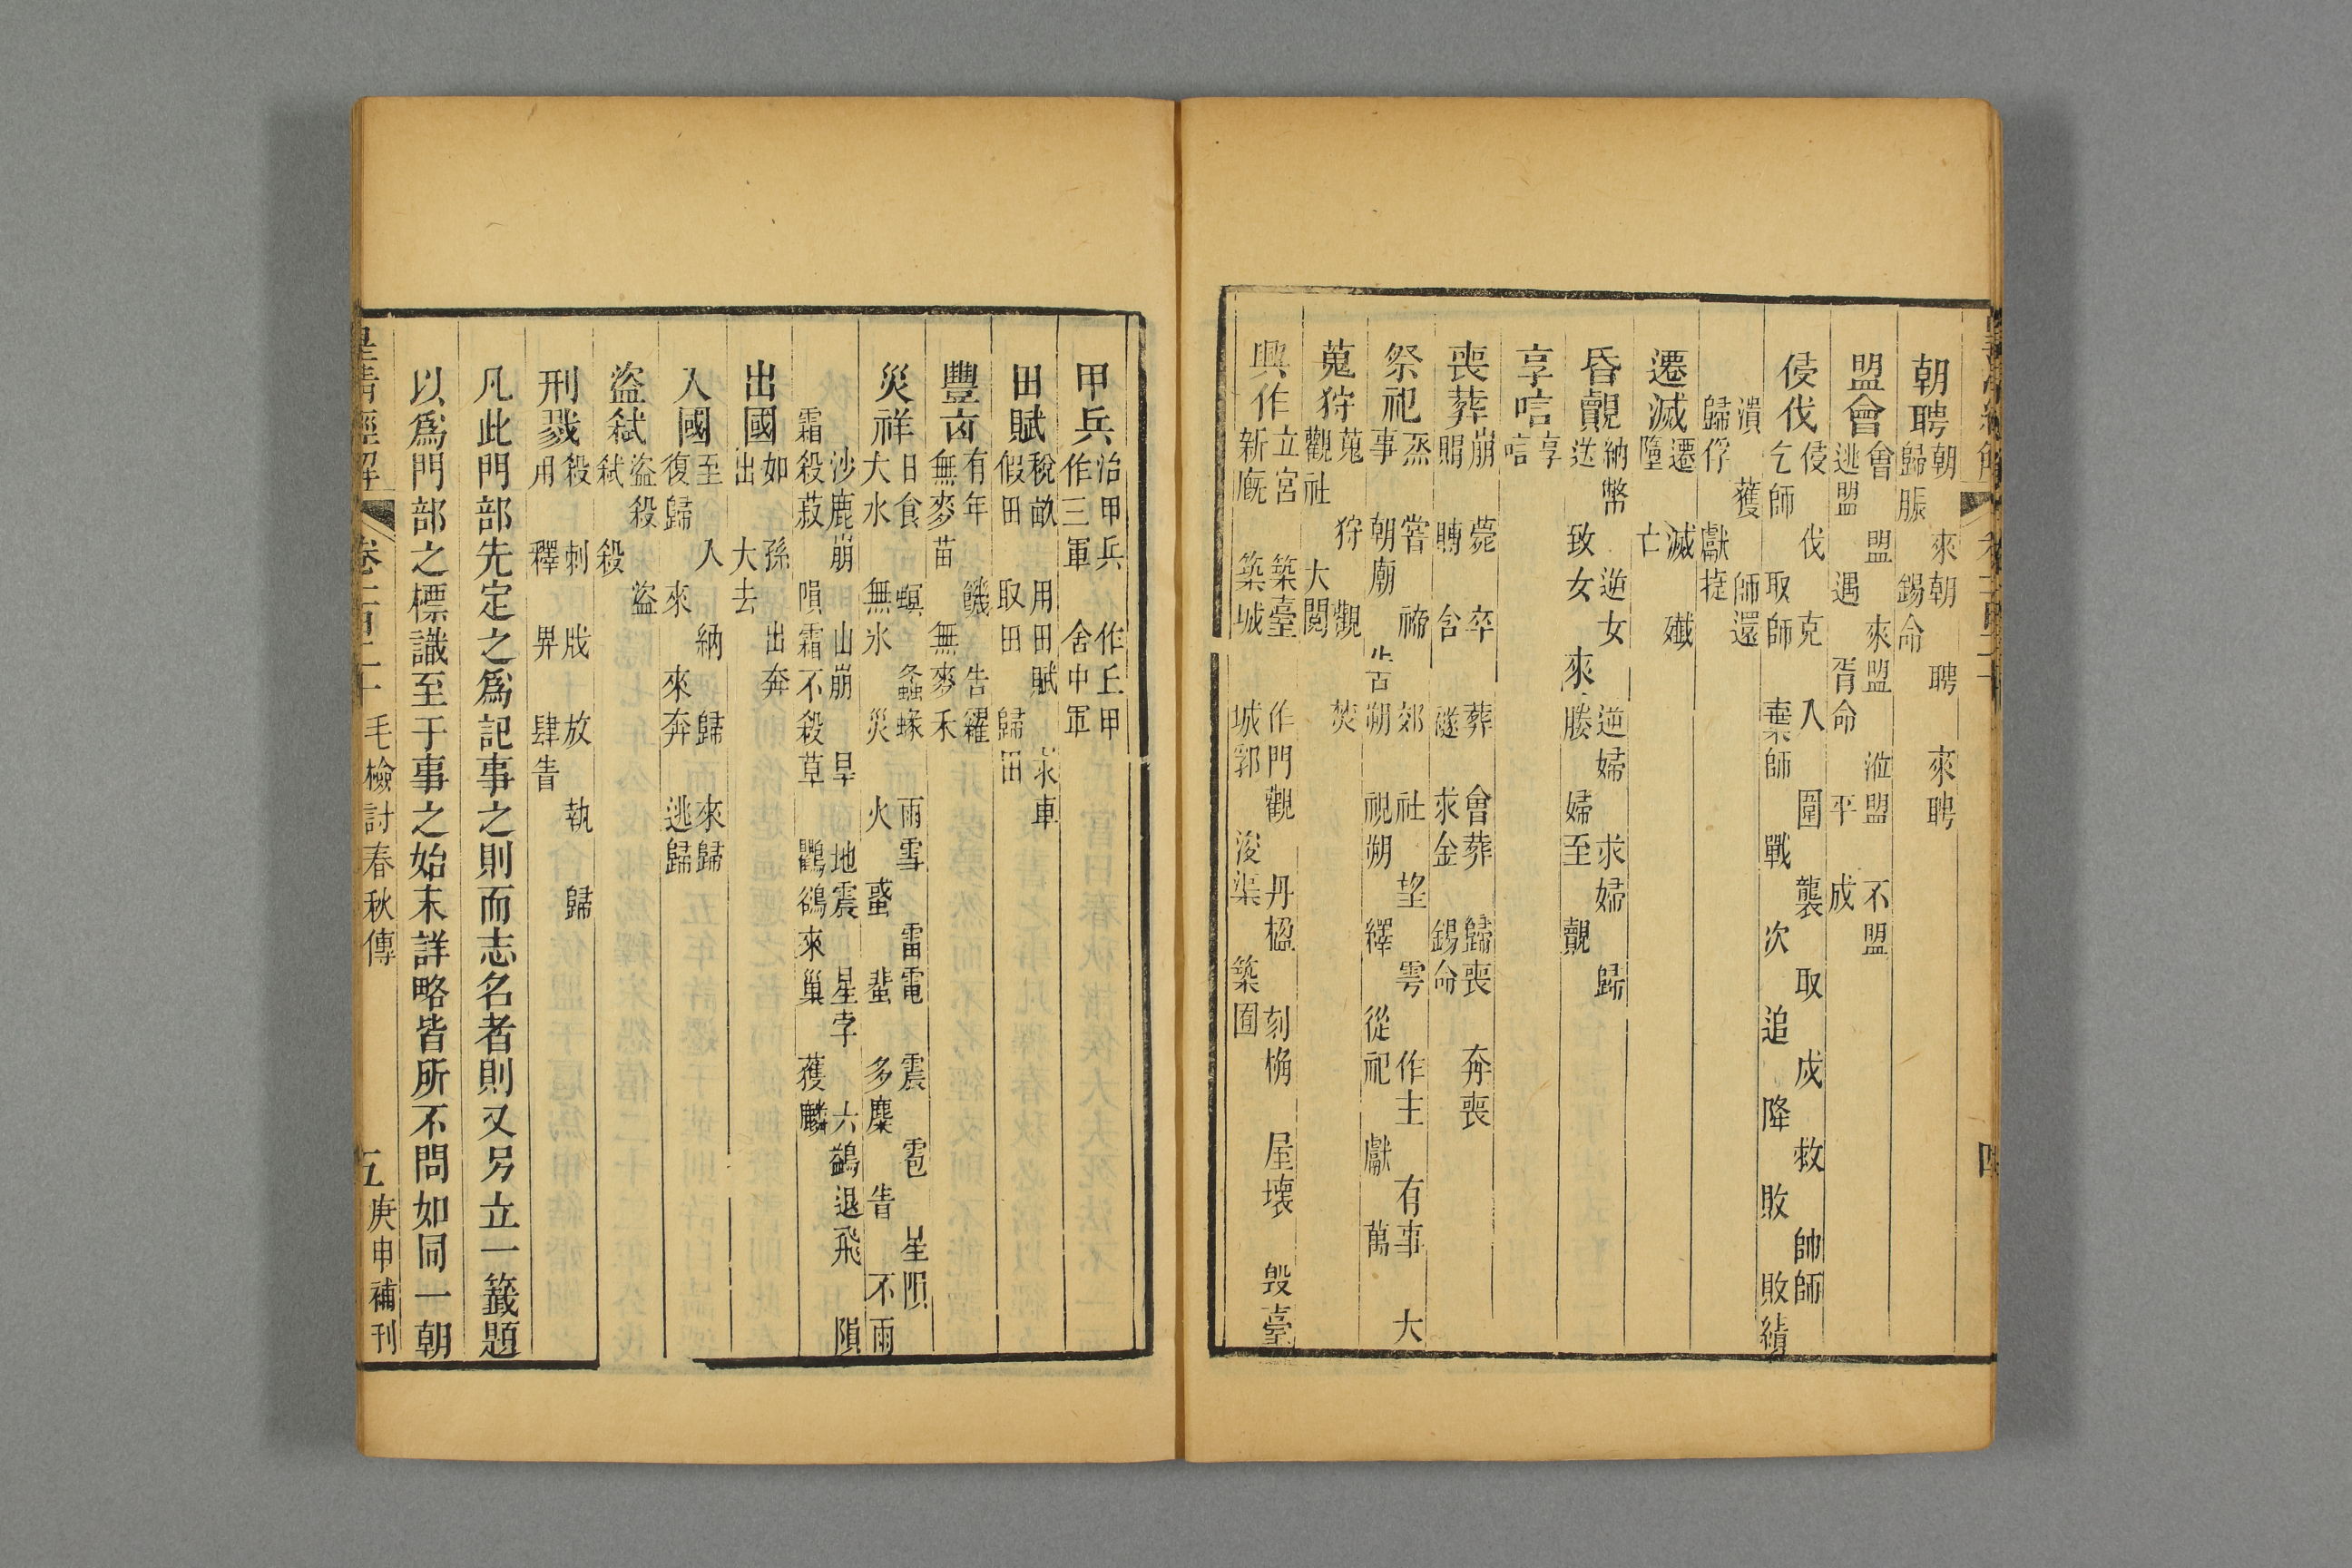 朝聘朝 來朝 聘 來聘歸脤 錫命
盟會會 盟 來盟 涖盟 不盟逃盟 遇 胥命 平 成
侵伐侵 伐 克 入 圍 襲 取 戍 救 帥師乞師 取師 棄師 戰 次 追 降 敗 敗績
潰 獲 師還歸俘 獻捷
遷滅遷 滅 殲墮 亡
昏覿納幣 逆女 逆婦 求婦 歸送 致女 來媵 婦至 覿
享唁享唁
喪葬崩 薨 卒 葬 會葬 歸喪 奔喪賵 賻 含 襚 求金 錫命
祭祀烝 嘗 禘 郊 社 望 雩 作主 有事 大事 朝廟 告朔 視朔 繹 從祀 獻 萬
蒐狩蒐 狩 觀 焚觀社 大閱
興作立宮 築臺 作門觀 丹楹 刻桷 屋壞 毀臺新廐 築城 城郭 浚渠 築囿
四
甲兵治甲兵 作丘甲作三軍 舍中軍
田賦稅畝 用田賦 求車假田 取田 歸田
豐凶有年 饑 告糴無麥苗 無麥禾
災祥日食 螟 螽蝝 雨雪 雷電 震 雹 星隕大水 無氷 災 火 蜮 蜚 多麋 眚 不雨
沙鹿崩 山崩 旱 地震 星孛 六鷁退飛 隕霜殺菽 隕霜不殺草 鸜鵒來巢 獲麟
出國如 孫 出奔出 大去
入國至 入 納 歸 來歸復歸 來 來奔 逃歸
盜弒盜殺 盜弒 殺
刑戮殺 刺 戕 放 執 歸用 釋 畀 肆眚
凡此門部先定之爲記事之則而志名者則又另立一籤題
以爲門部之標識至于事之始末詳略皆所不問如同一朝
皇清經解 卷一百二十 毛檢討春秋傳 五 庚申補刊